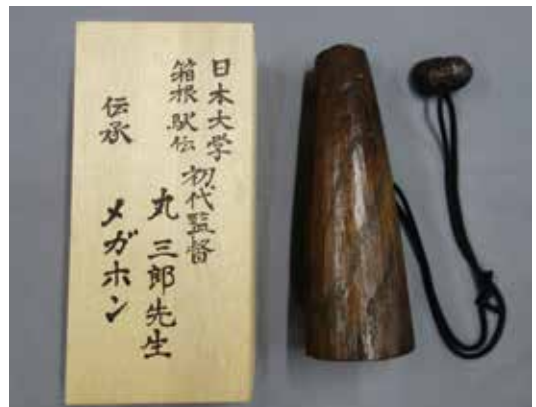 日本大学
箱根駅伝 初代監督
丸 三郎先生
伝承 メガホン